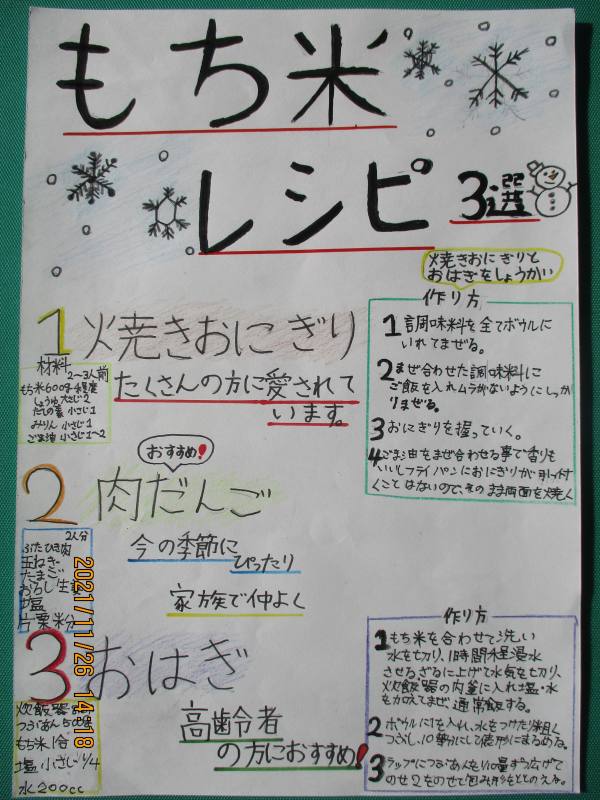 もち米
レシピ 3選
焼きおにぎりと
おはぎをしょうかい
1 焼きおにぎり
材料
2〜3人前
もち米600g程度
しょうゆ 大さじ2
だしの素 小さじ1
みりん 小さじ1
ごま油 小さじ1〜2
たくさんの方に愛されて
います。
作り方
1 調味料を全てボウルに
いれてまぜる。
2 まぜ合わせた調味料に
ご飯を入れムラがないようにしっか
りまぜる。
3 おにぎりを握っていく。
4 ごま油をまぜ合わせる事で香りも
いいしフライパンにおにぎりが引っ付
くことはないので、そのまま両面を焼く
おすすめ!
2 肉だんご
2人分
ぶたひき肉
玉ねぎ
たまご
おろし生
塩
片栗粉
今の季節に
ぴったり
家族で仲よく
2021/11/26 14:18
3 おはぎ
炊飯器
つぶあん
もち米1合
塩 小さじ1/4
水200cc
高齢者
の方におすすめ!
作り方
1 もち米を合わせて洗い
水を切り、1時間程浸水
させざるに上げて水気を切り、
炊飯器の内釜に入れ塩・水
を加えてまぜ通常飯する。
2 ボウルに1を入れ、水をつけたり粗く
つぶし、10等分にして俵形にまるめる。
3 ラップにつぶあんを1/10量ずつ広げて
のせ2をのせて包み形をととのえる。